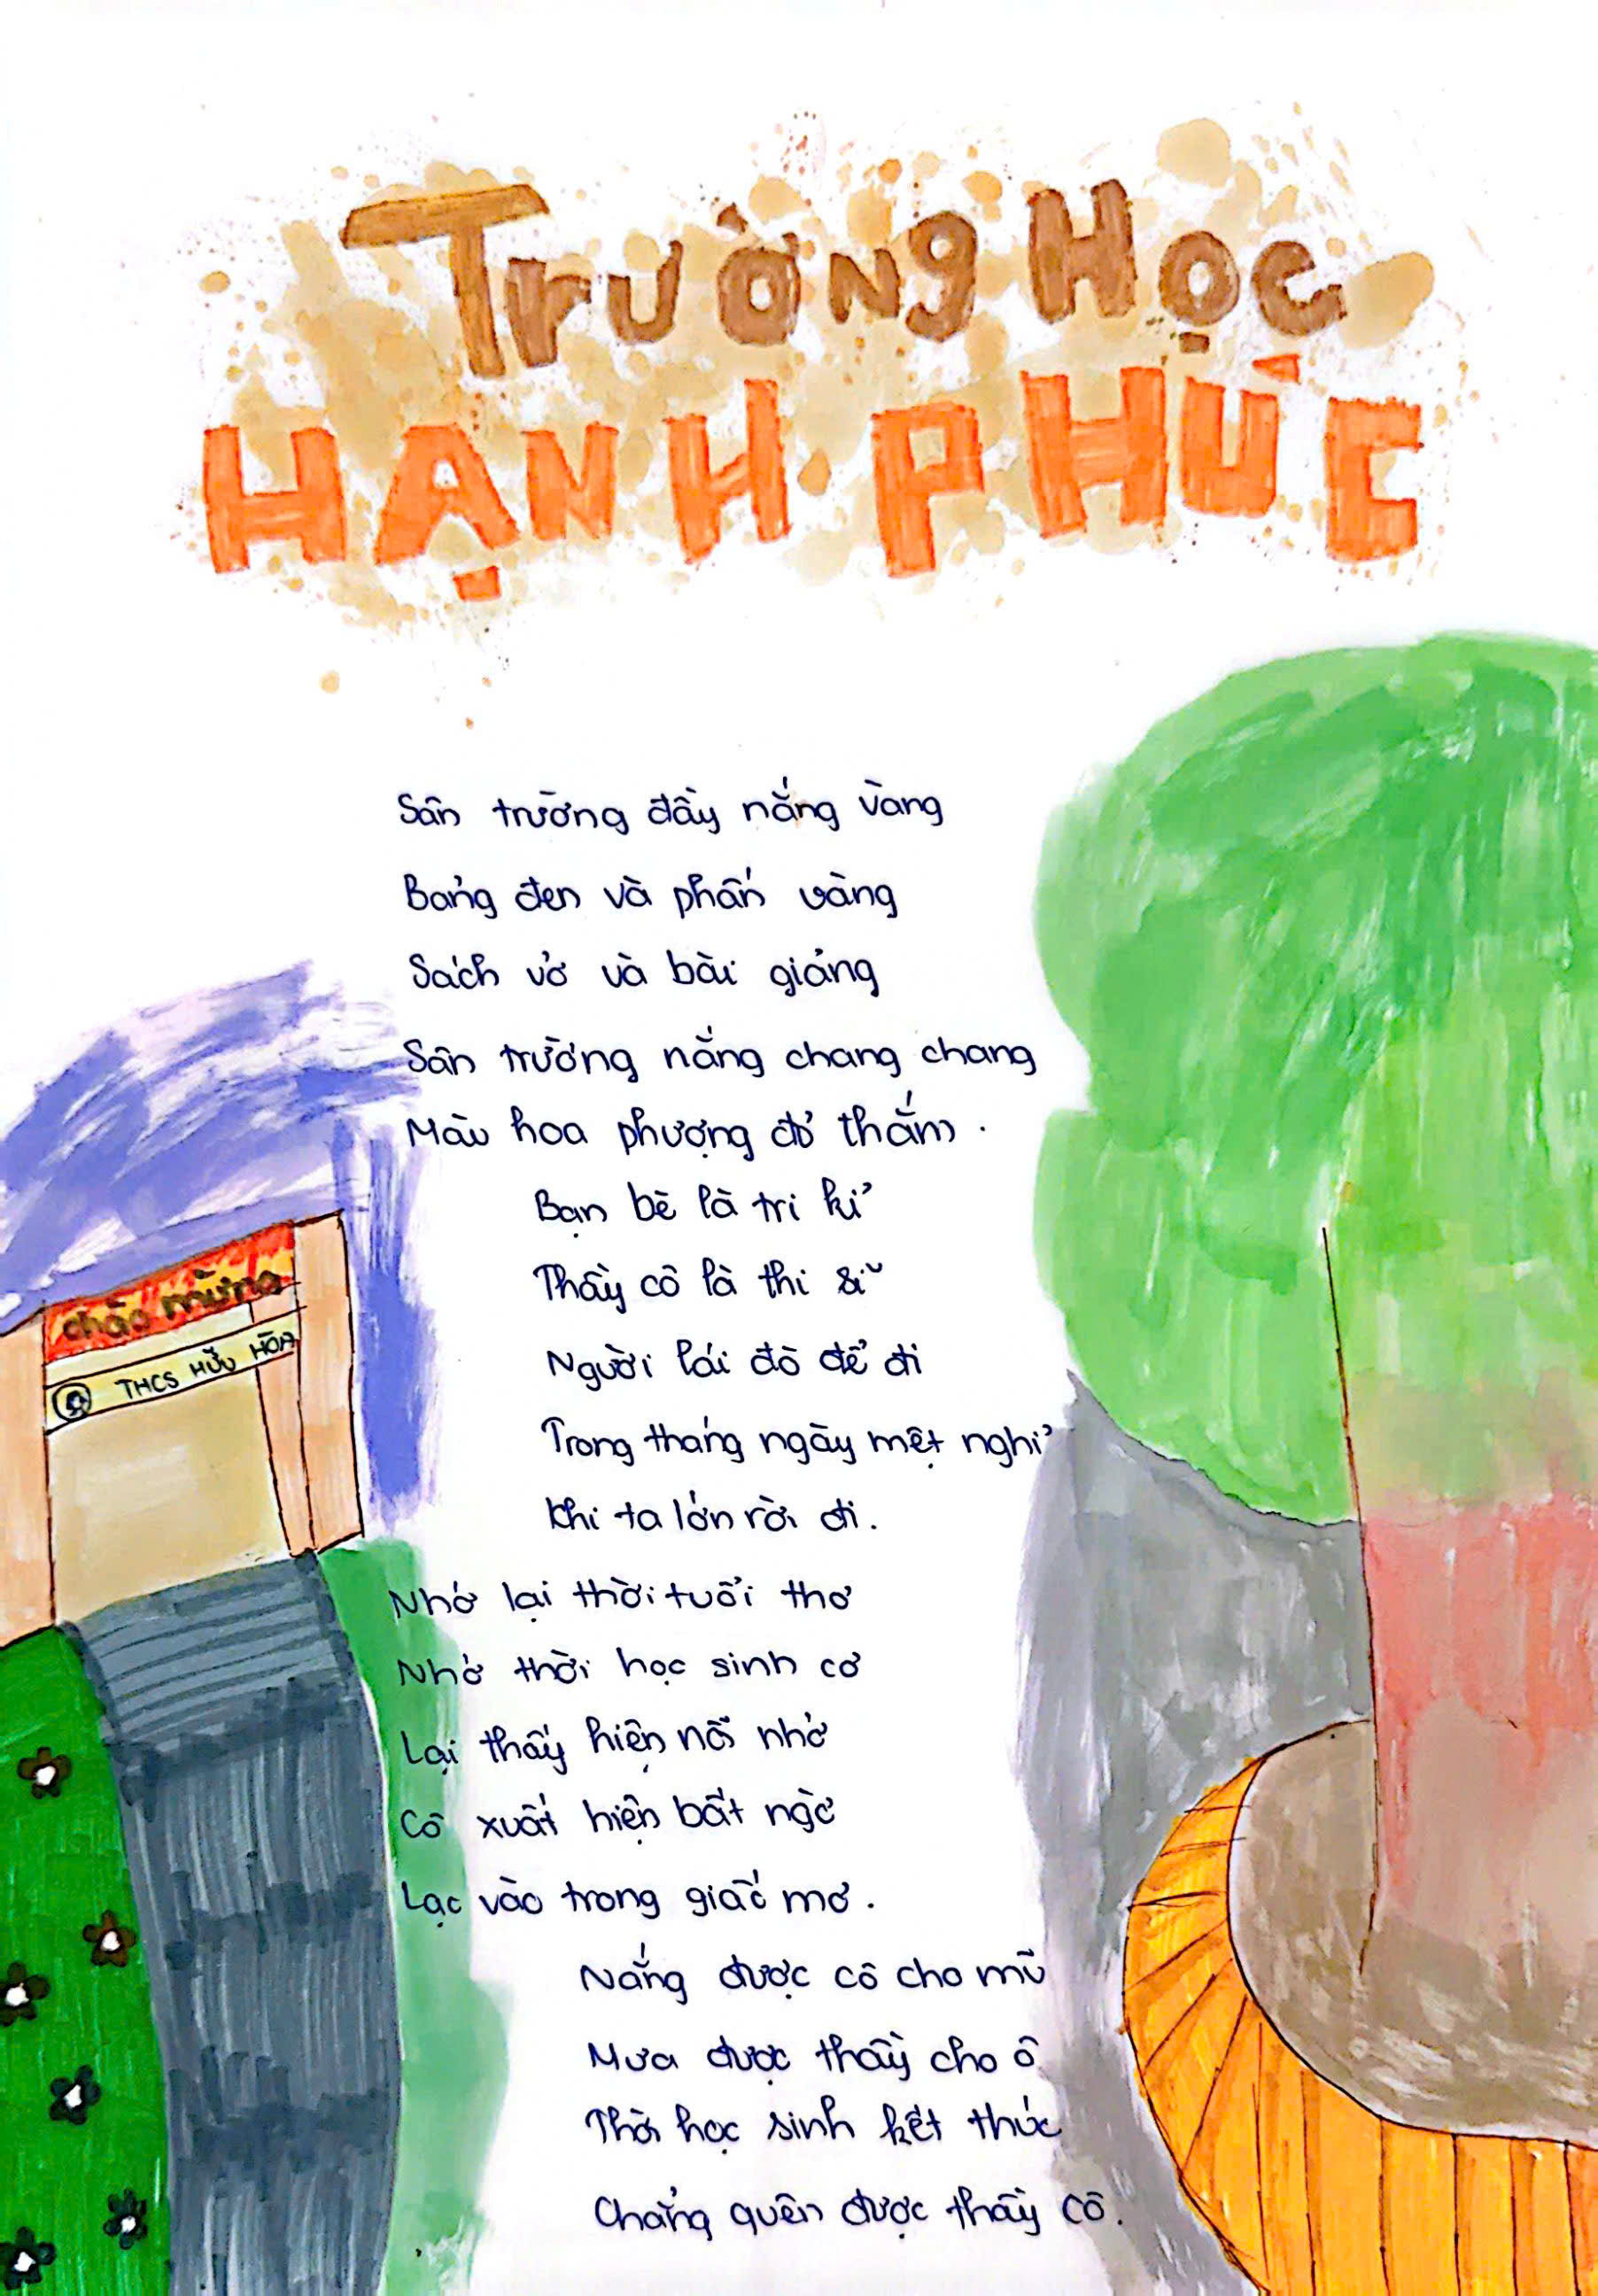 TRƯỜNG HỌC
HẠNH PHÚC
Sân trường đầy nắng vàng
Bảng đen và phấn vàng
Sách vở và bài giảng
Sân trường nắng chang chang
Màu hoa phượng đỏ thắm.
Bạn bè là tri kỉ
Thầy cô là thi sĩ
Người lái đò để đi
Trong tháng ngày mệt nghỉ
Khi ta lớn rời đi.
chào mừng
THCS HỮU HÒA
Nhớ lại thời tuổi thơ
Nhớ thời học sinh cơ
Lại thấy hiện nỗi nhớ
Cô xuất hiện bất ngờ
Lạc vào trong giấc mơ.
Nắng được cô cho mũ
Mưa được thầy cho ô
Thời học sinh kết thúc
Chẳng quên được thầy cô.